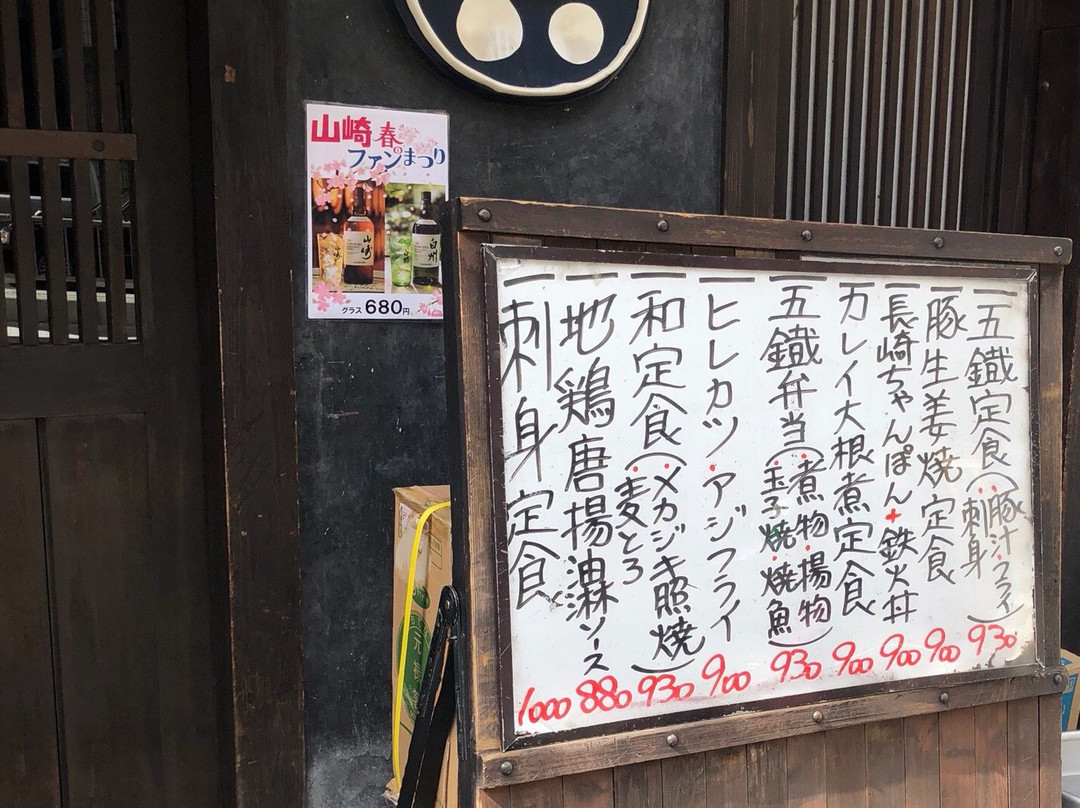 山崎春の
ファンまつり
山崎
白州
グラス680円
一五鐵定食(豚汁・フライ・刺身) 930
一豚生姜焼定食 900
一長崎ちゃんぽん+鉄火丼 900
一カレイ大根煮定食 900
一五鐵弁当(煮物・揚物・玉子焼・焼魚) 930
一ヒレカツ・アジフライ 900
一和定食(メカジキ照焼・麦とろ) 930
一地鶏唐揚油淋ソース 880
一刺身定食 1000